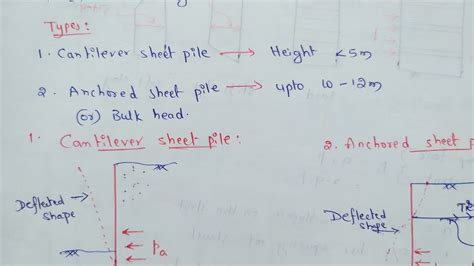 Types:
1. Cantilever sheet pile → Height <5m
2. Anchored sheet pile → upto 10-12m
(or) Bulk head.
1. Cantilever sheet pile:
2. Anchored sheet p
Deflected
shape
Pa
Deflected
shape